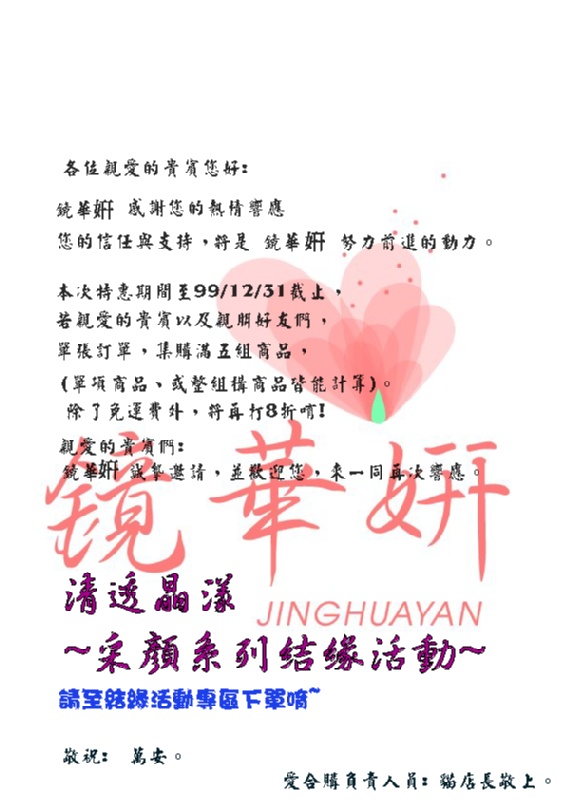 各位親愛的貴賓您好:
鏡華妍 感謝您的熱情響應
您的信任與支持，將是 鏡華妍 努力前進的動力。
本次特惠期間至99/12/31截止，
若親愛的貴賓以及親朋好友們，
單張訂單，集購滿五組商品，
(單項商品、或整組構商品皆能計算)。
除了免運費外，將再打8折唷!
親愛的貴賓們:
鏡華妍 誠摯邀請，並歡迎您，來一同再次響應。
鏡華妍
清透晶漾
JINGHUAYAN
~采顏系列結緣活動~
請至結緣活動專區下單唷~
敬祝: 萬安。
愛合購負責人員: 貓店長敬上。